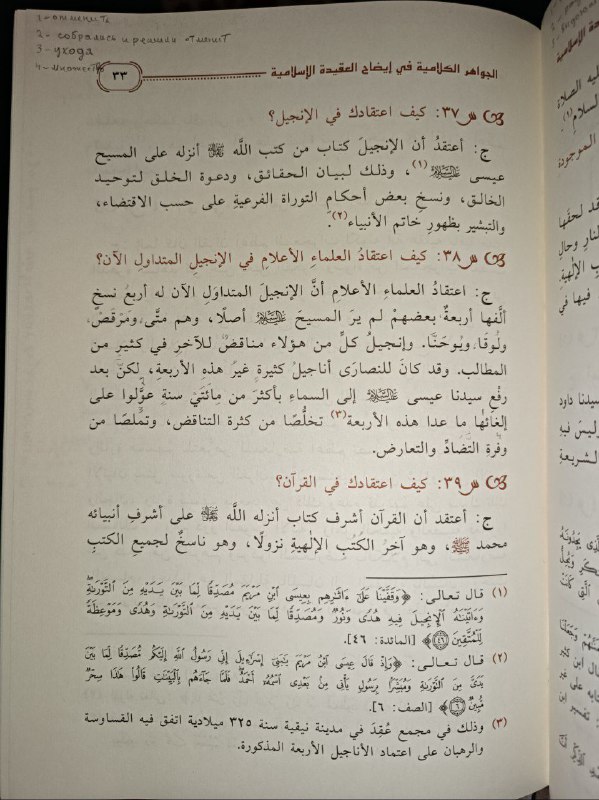 1 - отменить
2 - собрались и решили отменит
3 - ухода
4 - множеств
٣٣ الجواهر الكلامية في إيضاح العقيدة الإسلامية
س٣٧: كيف اعتقادك في الإنجيل؟
ج: أعتقدُ أن الإنجيلَ كتاب من كتب اللَّه ﷻ أنزله على المسيح
عيسى عليه السلام (١)، وذلك لبيان الحقائق، ودعوة الخلق لتوحيد
الخالق، ونسخِ بعض أحكامِ التوراة الفرعيةِ على حسب الاقتضاء،
والتبشير بظهورِ خاتم الأنبياء(٢).
س٣٨: كيف اعتقادُ العلماءِ الأعلامِ في الإنجيل المتداول الآن؟
ج: اعتقادُ العلماءِ الأعلامِ أنَّ الإنجيلَ المتداوَل الآن له أربعُ نسخٍ
ألَّفها أربعةٌ بعضهمْ لم يرَ المسيحَ عليه السلام أصلًا، وهم متَّى ومَرْقصُ
ولُوقَا ويُوحَنَّا. وإنجيلُ كلٍّ من هؤلاء مناقضٌ للآخرِ في كثيرٍ من
المطالب. وقد كانَ للنصارَى أناجيلُ كثيرةٍ غيرُ هذه الأربعةِ، لكنْ بعد
رفْعِ سيدنا عيسى عليه السلام إلى السماءِ بأكثرَ من مِائَتَيْ سنةٍ عوَّلوا على
إلغائها ما عدا هذه الأربعة(٣) تخلُّصًا من كثرة التناقض، وتملُّصا من
وفرةِ التضادِّ والتعارض.
س٣٩: كيف اعتقادُك في القرآن؟
ج: أعتقد أن القرآن أشرف كتاب أنزله اللَّه ﷻ على أشرفِ أنبيائه
محمد ﷺ، وهو آخِرُ الكُتُبِ الإلهيةِ نزولًا، وهو ناسخٌ لجميعِ الكتبِ
(١) قال تعالى: ﴿وَقَفَّيْنَا عَلَىٰٓ ءَاثَٰرِهِم بِعِيسَى ٱبْنِ مَرْيَمَ مُصَدِّقًا لِّمَا بَيْنَ يَدَيْهِ مِنَ ٱلتَّوْرَىٰةِۖ
وَءَاتَيْنَٰهُ ٱلْإِنجِيلَ فِيهِ هُدًى وَنُورٌ وَمُصَدِّقًا لِّمَا بَيْنَ يَدَيْهِ مِنَ ٱلتَّوْرَىٰةِ وَهُدًى وَمَوْعِظَةً
لِّلْمُتَّقِينَ ٤٦﴾ [المائدة: ٤٦].
(٢) قال تعالى: ﴿وَإِذْ قَالَ عِيسَى ٱبْنُ مَرْيَمَ يَٰبَنِىٓ إِسْرَٰٓءِيلَ إِنِّى رَسُولُ ٱللَّهِ إِلَيْكُم مُّصَدِّقًا لِّمَا بَيْنَ
يَدَىَّ مِنَ ٱلتَّوْرَىٰةِ وَمُبَشِّرًۢا بِرَسُولٍ يَأْتِى مِنۢ بَعْدِى ٱسْمُهُۥٓ أَحْمَدُۖ فَلَمَّا جَآءَهُم بِٱلْبَيِّنَٰتِ قَالُوا۟ هَٰذَا سِحْرٌ
مُّبِينٌ ٦﴾ [الصف: ٦].
(٣) وذلك في مجمع عُقِدَ في مدينة نيقية سنة ٣٢٥ ميلادية اتفق فيه القساوسة
والرهبان على اعتماد الأناجيل الأربعة المذكورة.